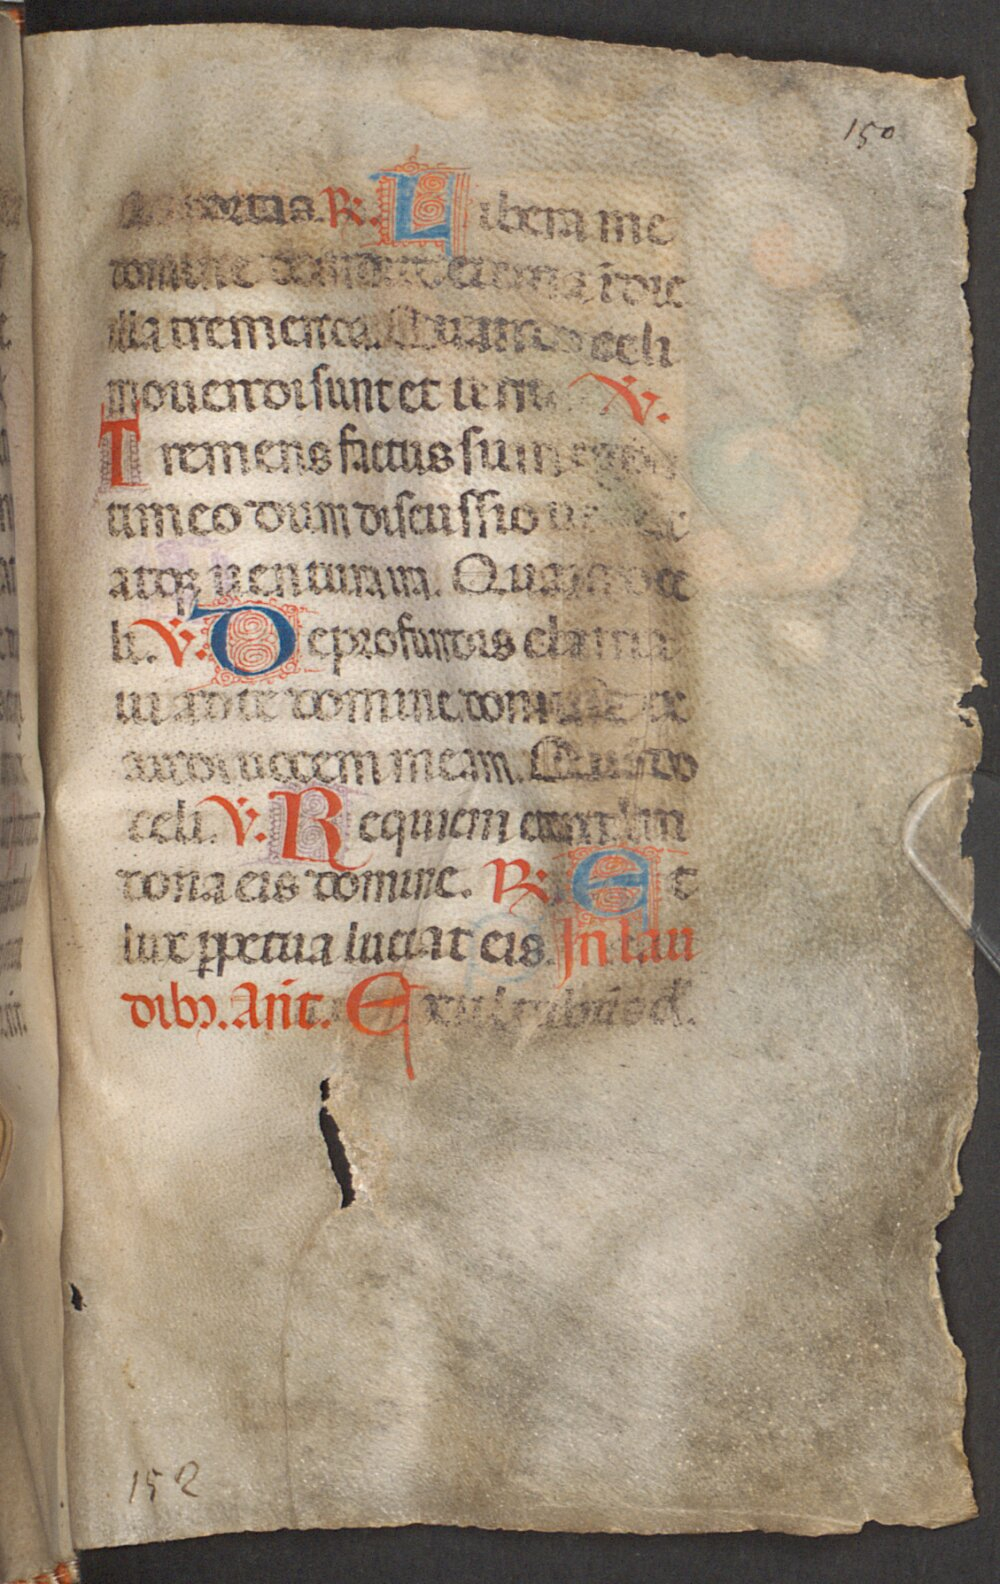 150
mortas. ℟. Libera me
domine de morte eterna ī die
illa tremenda. Quando celi
movendi sunt et terra ℣.
Tremens factus sum ego
timeo dum discussio
atqꝫ ventura ira. Quando ce
li. ℣. De profundis clama
ui ad te domine domine ex
audi uocem meam. Quādo
celi. ℣. Requiem eternam
dona eis domine. ℟. Et
lux ꝑpetua luceat eis. In lau
dibꝫ. Añt. Exultabūt d.
152